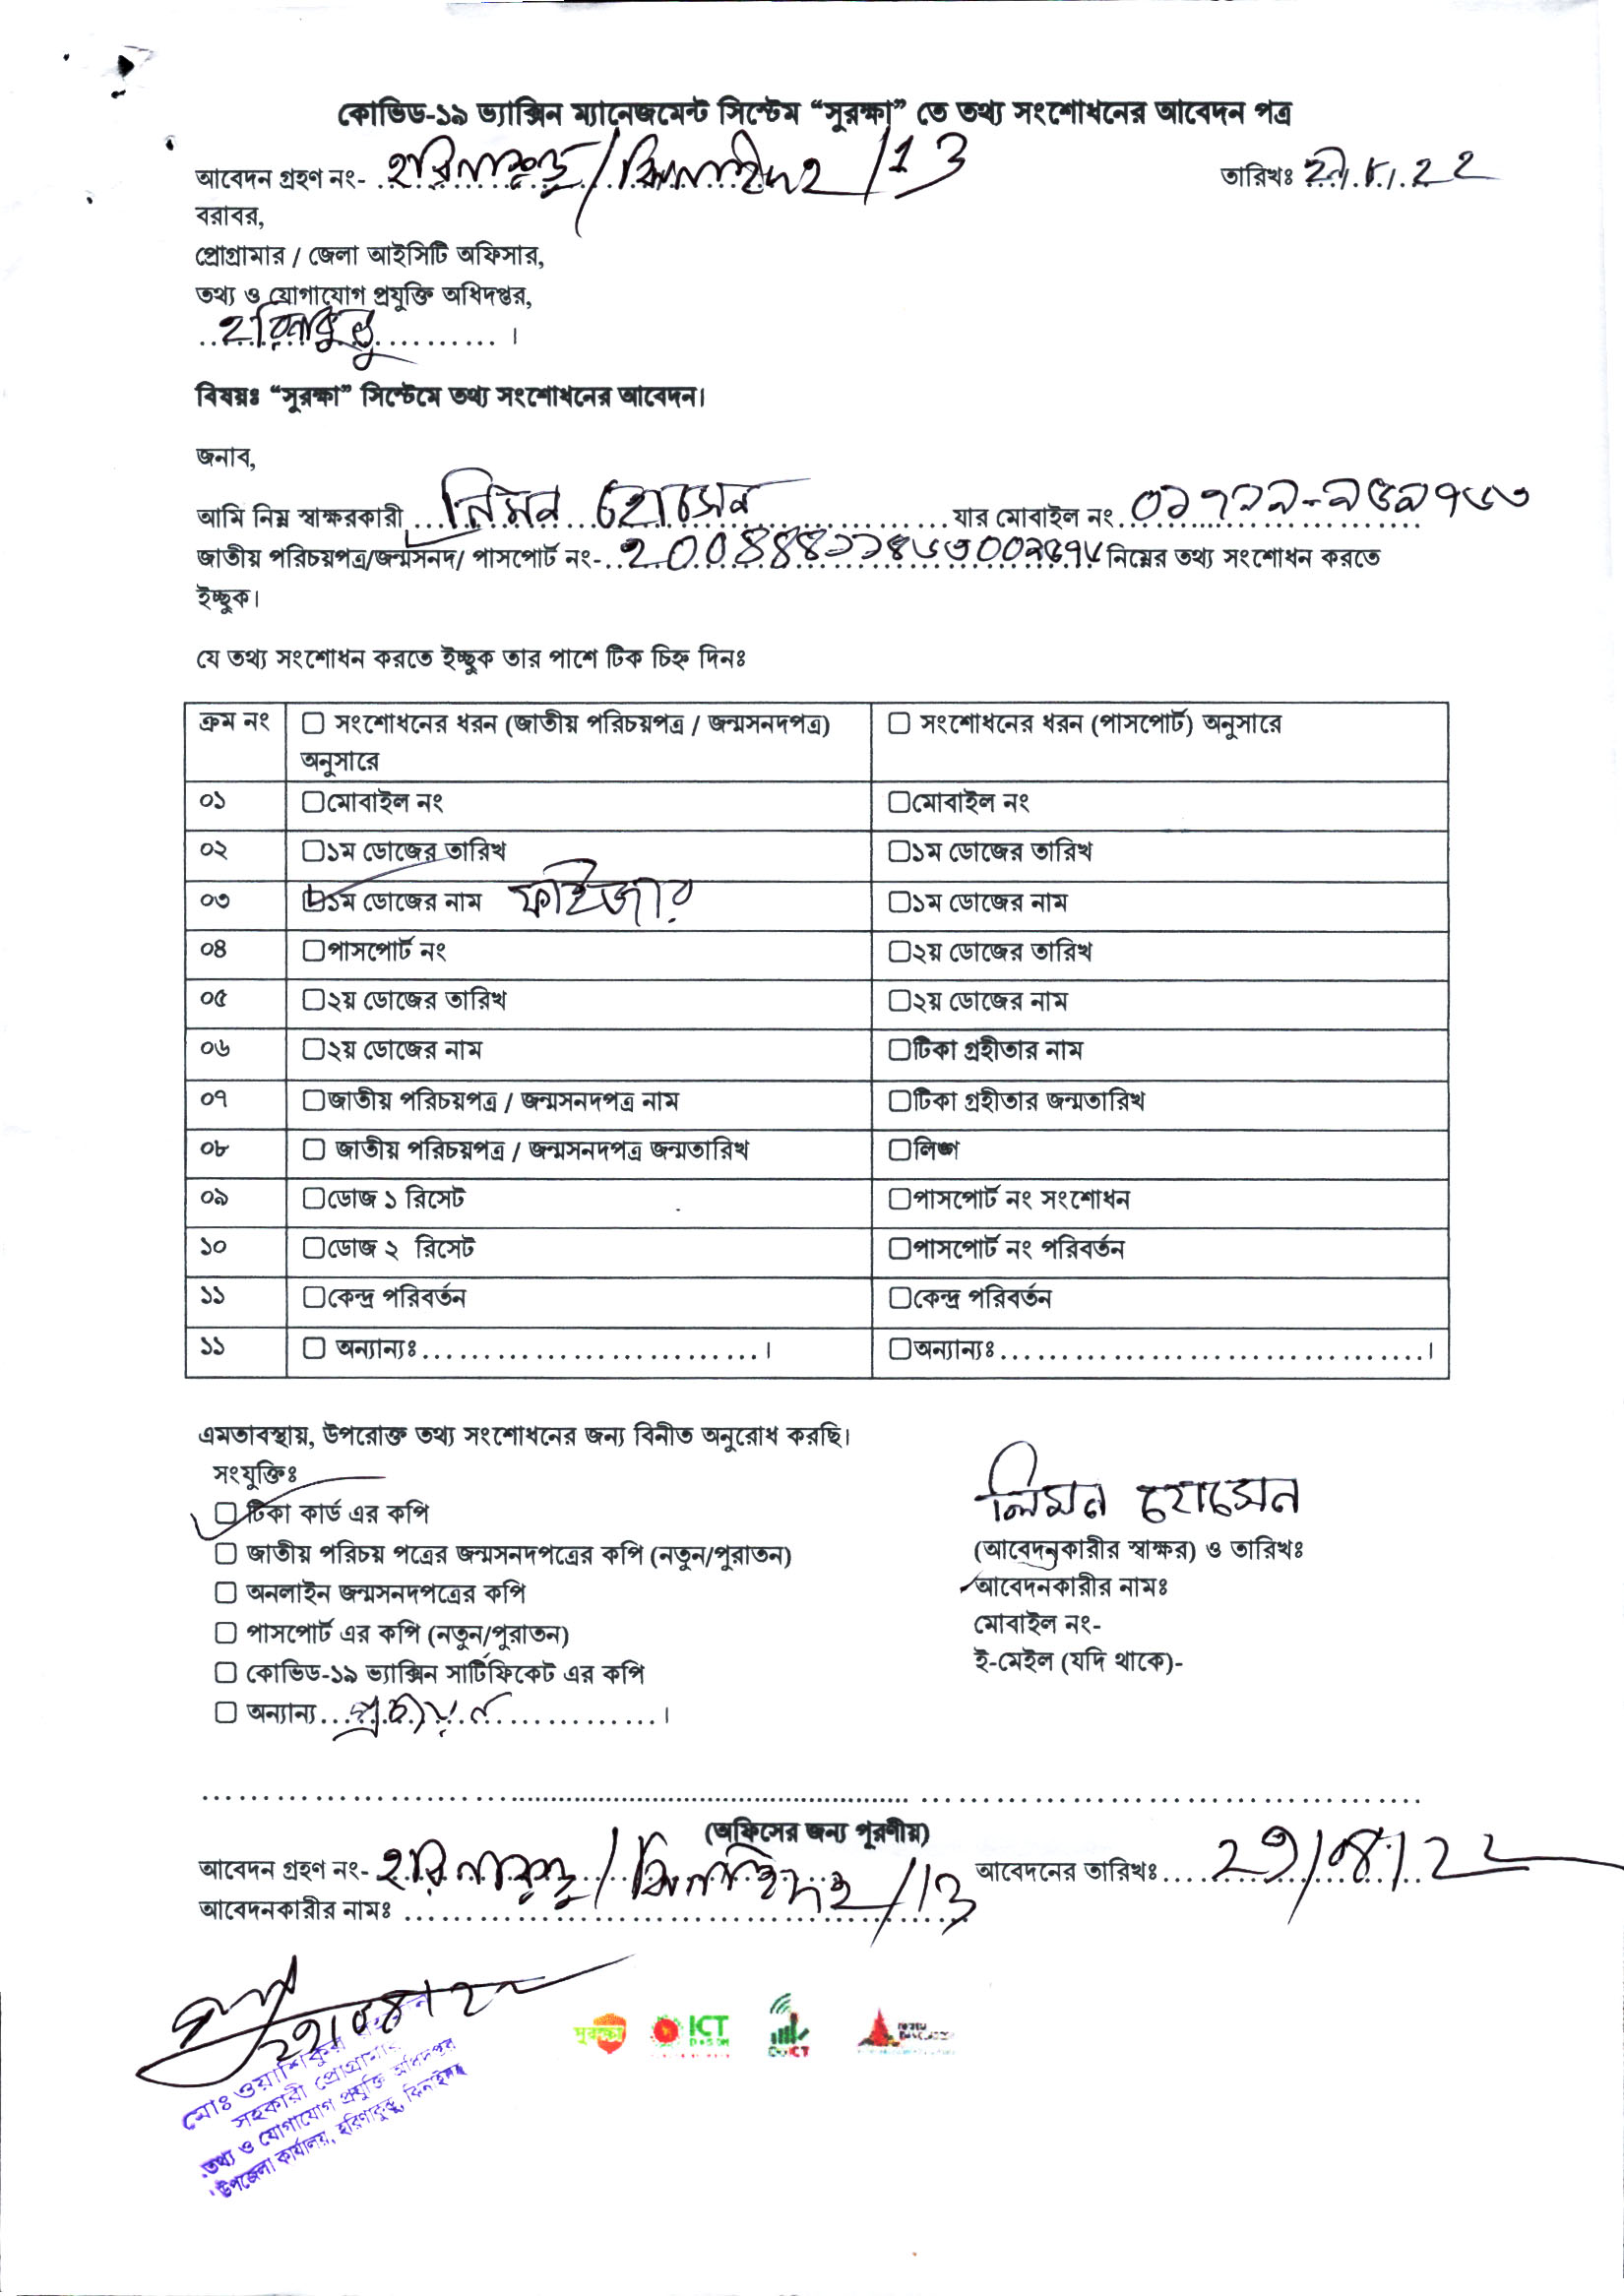 কোভিড-১৯ ভ্যাক্সিন ম্যানেজমেন্ট সিস্টেম “সুরক্ষা” তে তথ্য সংশোধনের আবেদন পত্র
আবেদন গ্রহণ নং- হরিনাকুন্ডু/ঝিনাইদহ/13 তারিখঃ
বরাবর,
প্রোগ্রামার / জেলা আইসিটি অফিসার,
তথ্য ও যোগাযোগ প্রযুক্তি অধিদপ্তর,
হরিনাকুন্ডু।
বিষয়ঃ “সুরক্ষা” সিস্টেমে তথ্য সংশোধনের আবেদন।
জনাব,
আমি নিম্ন স্বাক্ষরকারী লিমন হোসেন যার মোবাইল নং
জাতীয় পরিচয়পত্র/জন্মসনদ/ পাসপোর্ট নং- নিম্নের তথ্য সংশোধন করতে
ইচ্ছুক।
যে তথ্য সংশোধন করতে ইচ্ছুক তার পাশে টিক চিহ্ন দিনঃ
ক্রম নং সংশোধনের ধরন (জাতীয় পরিচয়পত্র / জন্মসনদপত্র) সংশোধনের ধরন (পাসপোর্ট) অনুসারে
অনুসারে
০১ মোবাইল নং মোবাইল নং
০২ ১ম ডোজের তারিখ ১ম ডোজের তারিখ
০৩ ১ম ডোজের নাম ফাইজার ১ম ডোজের নাম
০৪ পাসপোর্ট নং ২য় ডোজের তারিখ
০৫ ২য় ডোজের তারিখ ২য় ডোজের নাম
০৬ ২য় ডোজের নাম টিকা গ্রহীতার নাম
০৭ জাতীয় পরিচয়পত্র / জন্মসনদপত্র নাম টিকা গ্রহীতার জন্মতারিখ
০৮ জাতীয় পরিচয়পত্র / জন্মসনদপত্র জন্মতারিখ লিঙ্গ
০৯ ডোজ ১ রিসেট পাসপোর্ট নং সংশোধন
১০ ডোজ ২ রিসেট পাসপোর্ট নং পরিবর্তন
১১ কেন্দ্র পরিবর্তন কেন্দ্র পরিবর্তন
১১ অন্যান্যঃ..........................। অন্যান্যঃ..................................।
এমতাবস্থায়, উপরোক্ত তথ্য সংশোধনের জন্য বিনীত অনুরোধ করছি।
সংযুক্তিঃ
লিমন হোসেন
টিকা কার্ড এর কপি
জাতীয় পরিচয় পত্রের জন্মসনদপত্রের কপি (নতুন/পুরাতন) (আবেদনকারীর স্বাক্ষর) ও তারিখঃ
অনলাইন জন্মসনদপত্রের কপি আবেদনকারীর নামঃ
পাসপোর্ট এর কপি (নতুন/পুরাতন) মোবাইল নং-
কোভিড-১৯ ভ্যাক্সিন সার্টিফিকেট এর কপি ই-মেইল (যদি থাকে)-
অন্যান্য প্রত্যয়ন।
(অফিসের জন্য পূরণীয়)
আবেদন গ্রহণ নং- হরিনাকুন্ডু/ঝিনাইদহ/13 আবেদনের তারিখঃ
আবেদনকারীর নামঃ
সুরক্ষা ICT DoICT
মোঃ ওয়াশিকুর রহমান
সহকারী প্রোগ্রামার
তথ্য ও যোগাযোগ প্রযুক্তি অধিদপ্তর
উপজেলা কার্যালয়, হরিণাকুন্ডু, ঝিনাইদহ